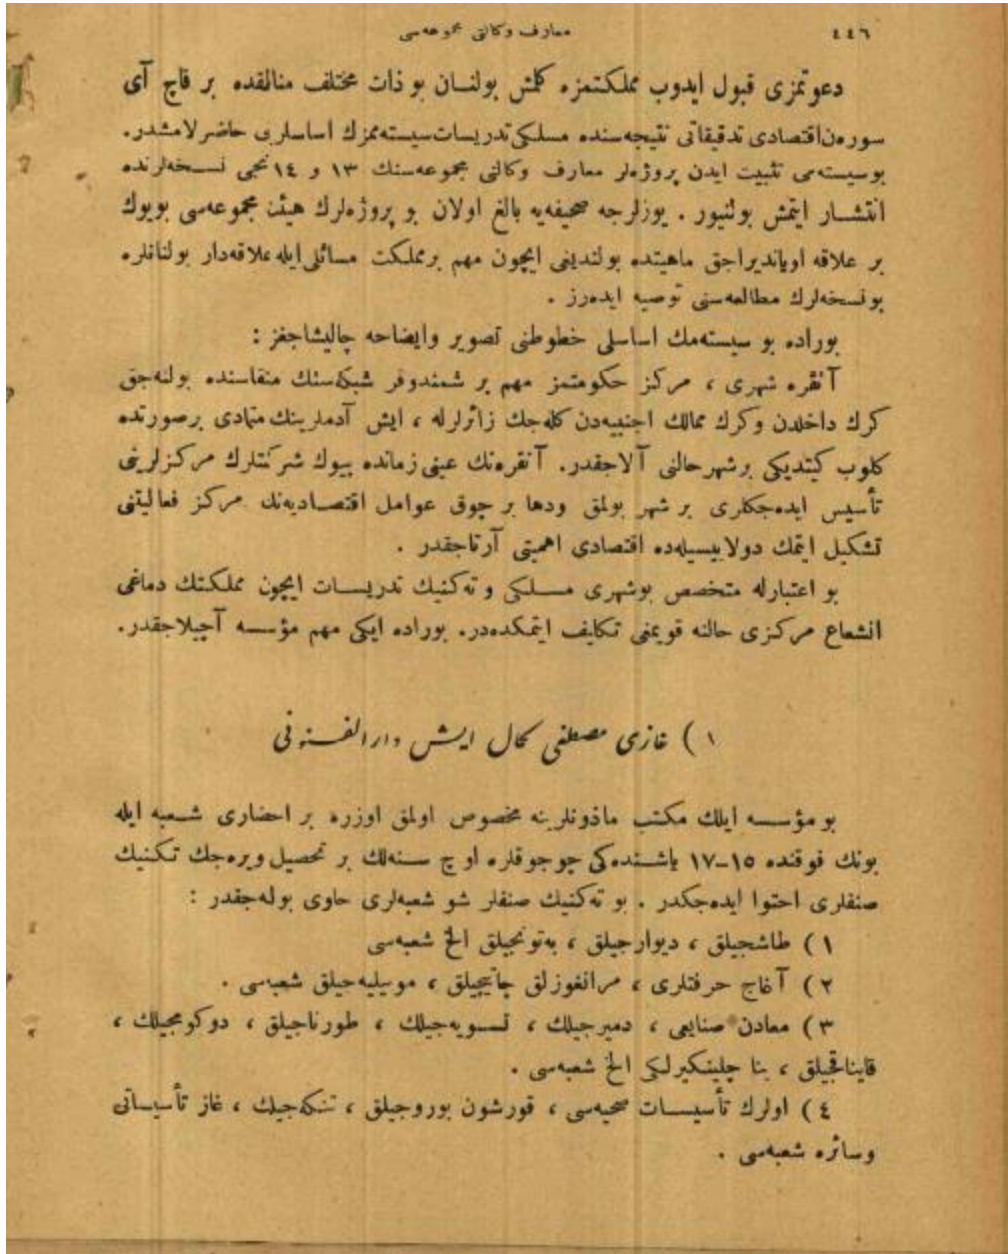 ٤٤٦
معارف وکالتی مجموعه‌سی
دعوتمزی قبول ایدوب مملکتمزه کلمش بولنــان بو ذات مختلف مناطقده بر قاچ آی
سورەن اقتصادی تدقیقاتی نتیجه‌سنده مسلکی تدریسات سیستەمزك اساسلرینی حاضرلامشدر.
بوسیستەمی تثبیت ایدن پروژه‌لر معارف وکالتی مجموعه‌سنك ١٣ و ١٤ نجی نسـخه‌لرنده
انتشـار ایتمش بولنیور . یوزلرجه صحیفه‌یه بالغ اولان بو پروژه‌لرك هیئت مجموعه‌سی بویوك
بر علاقه اویاندیراجق ماهیتده بولندیغی ایچون مهم بر مملکت مسائلی ایله علاقه‌دار بولنانلره
بو نسخه‌لرك مطالعه‌سنی توصیه ایده‌رز .
بوراده بو سیستەمك اساسلی خطوطنی تصویر و ایضاحه چالیشاجغز :
آنقره شهری ، مرکز حکومتمز مهم بر شمندوفر شبکه‌سنك منفاسنده بولنه‌جق
کرك داخلدن و کرك ممالك اجنبیه‌دن کله‌جك زائرلرله ، ایش آدملرینك متمادی بر صورتده
کلوب کیتدیکی بر شهر حالنی آلاجقدر. آنقره‌نك عینی زمانده بیوك شرکتلرك مرکزلرینی
تأسیس ایده‌جکلری بر شهر بولمق ودها بر چوق عوامل اقتصـادیه‌نك مرکز فعالیتنی
تشکیل ایتمك دولاییسیله‌ده اقتصادی اهمیتی آرتاجقدر .
بو اعتبارله متخصص بوشهری مســلکی و تەکنیك تدریســات ایچون مملکتك دماغی
انشعاع مرکزی حالنه قویمغی تکلیف ایتمکده‌در. بوراده ایکی مهم مؤسسه آچیلاجقدر.
١ ) غازی مصطفی کمال ایش دارالفنونی
بو مؤسسه ایلك مکتب مأذونلرینه مخصوص اولمق اوزره بر احضاری شـعبه ایله
بونك فوقنده ١٥–١٧ یاشـنده‌کی چوجوقلره اوچ سـنه‌لك بر تحصیل ویره‌جك تکنیك
صنفلری احتوا ایده‌جکدر . بو تەکنیك صنفلر شو شعبه‌لری حاوی بوله‌جقدر :
١ ) طاشجیلق ، دیوارجیلق ، بەتونجیلق الخ شعبه‌سی
٢ ) آغاج حرفتلری ، مرانغوزلق چاتیجیلق ، موبیلیه‌جیلق شعبه‌سی .
٣ ) معادن صنایعی ، دمیرجیلك ، تسـویه‌جیلك ، طورناجیلق ، دوکومجیلك ،
قایناقجیلق ، بنا چلینکیرلکی الخ شعبه‌سی .
٤ ) اولرك تأسیسـات صحیه‌سی ، قورشون بوروجیلق ، تنکه‌جیلك ، غاز تأسیساتی
وسائره شعبه‌سی .